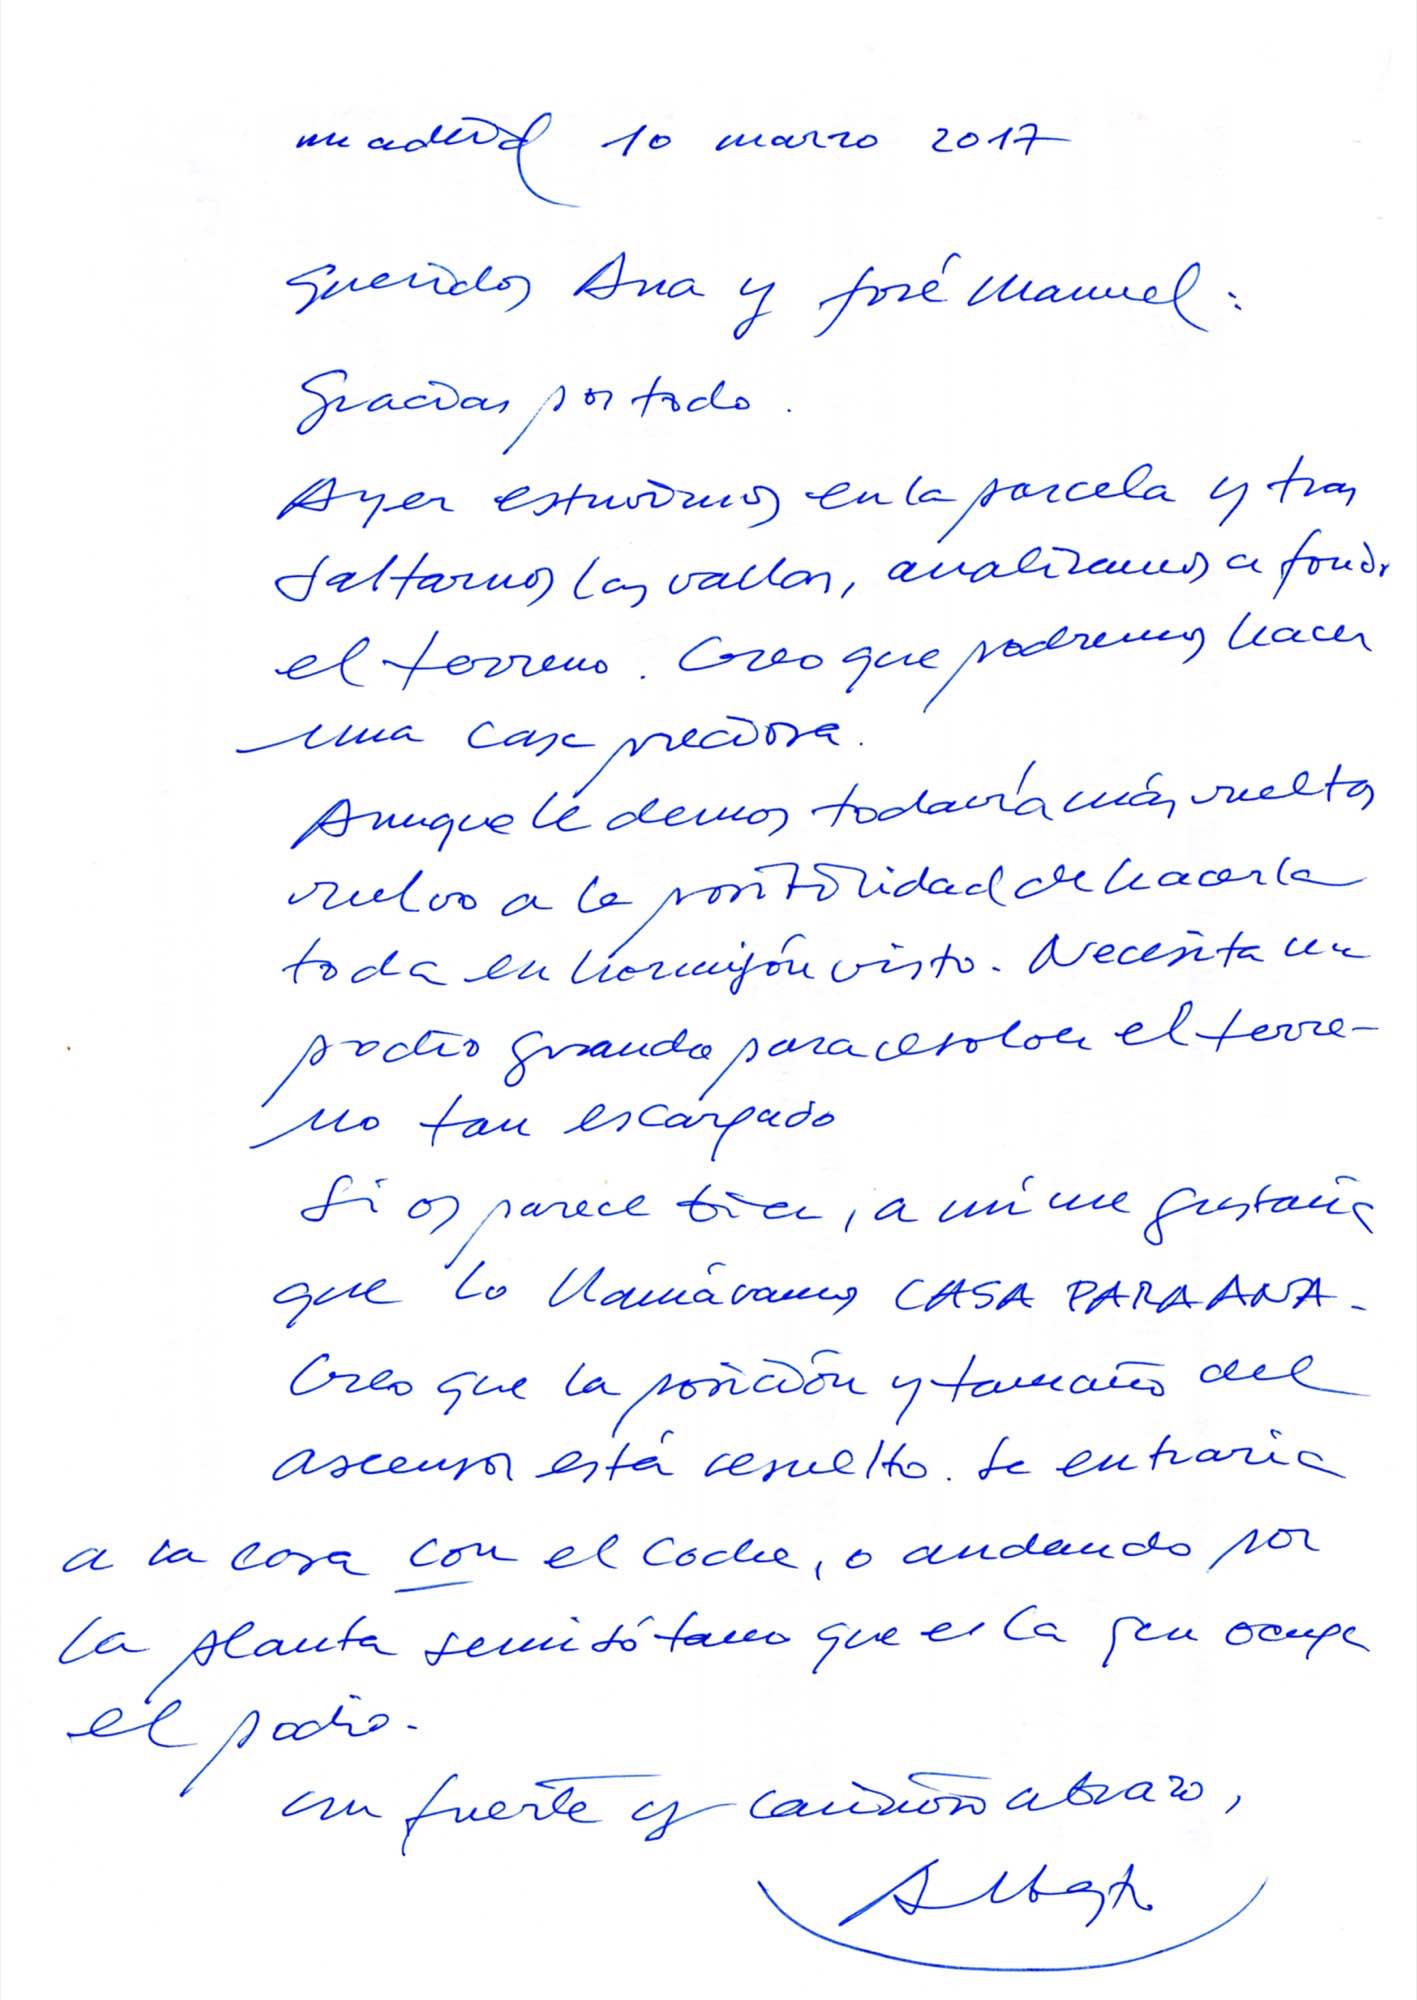 Madrid 10 marzo 2017
Queridos Ana y José Manuel:
Gracias por todo.
Ayer estuvimos en la parcela y tras
saltarnos las vallas, analizamos a fondo
el terreno. Creo que podremos hacer
una casa preciosa.
Aunque le demos todavía más vueltas
vuelvo a la posibilidad de hacerla
toda en hormigón visto. Necesita un
podio grande para resolver el terre-
no tan escarpado
Si os parece bien, a mí me gustaría
que lo llamáramos CASA PARA ANA.
Creo que la posición y tamaño del
ascensor está resuelto. Se entraría
a la casa con el coche, o andando por
la planta semisótano que es la que ocupa
el podio.
un fuerte y cariñoso abrazo,
Alberto